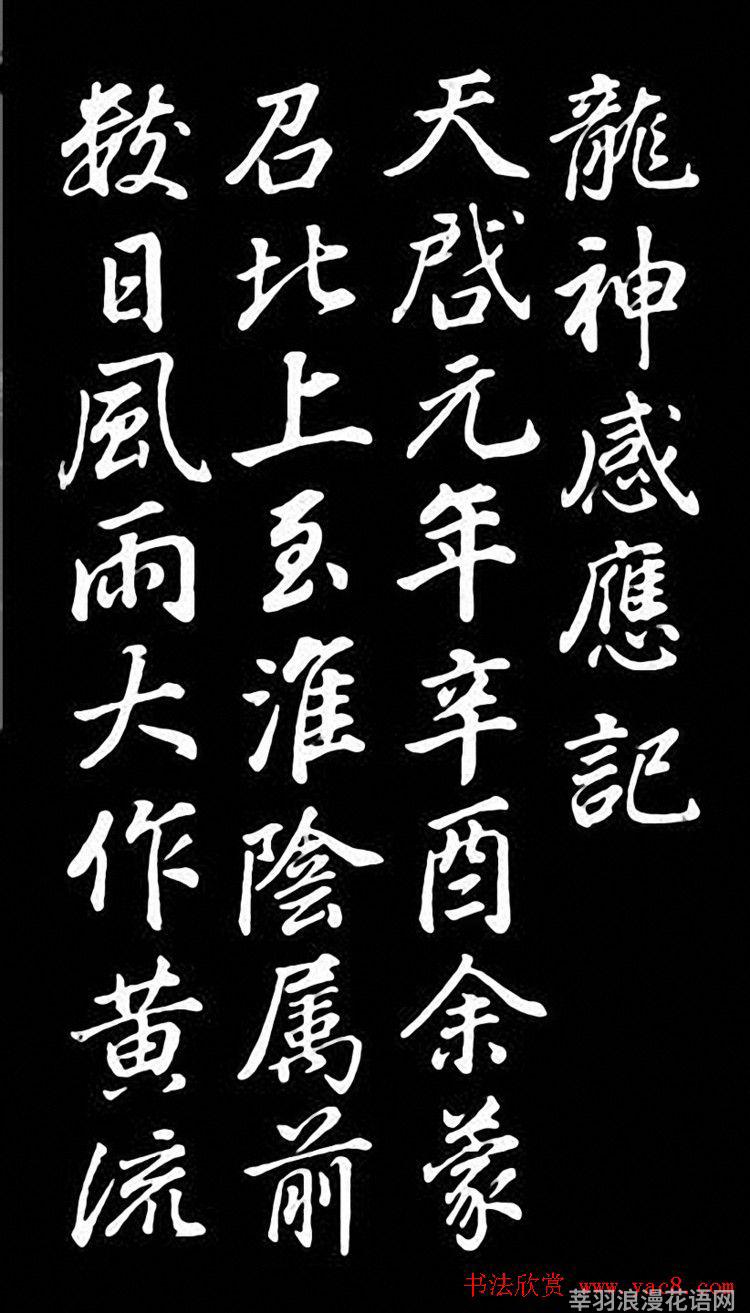 龍神感應記
天啓元年辛酉余蒙
召北上至淮陰属前
数日風雨大作黄流
书法欣赏 www.yac8.com
莘羽浪漫花语网